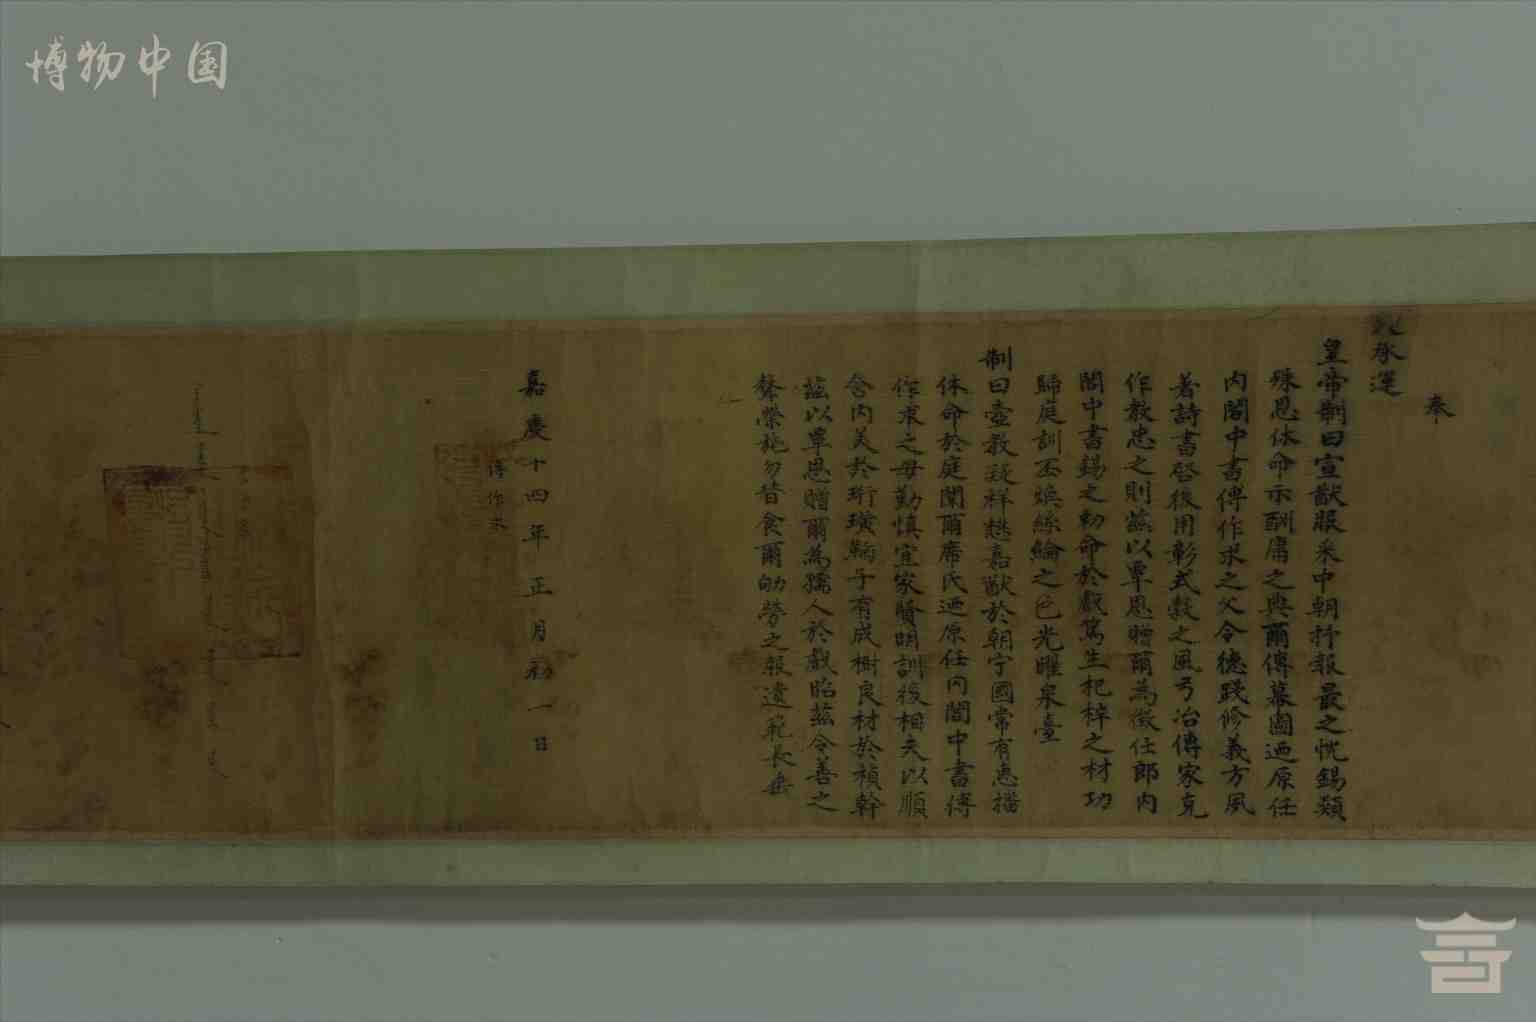 博物中国
奉
天承運
皇帝制曰宣猷服采中朝抒報最之忱錫類
殊恩休命示酬庸之典爾傅慕圖迺原任
內閣中書傅作求之父令德踐修義方夙
著詩書啓後用彰式穀之風弓冶傳家克
作教忠之則茲以覃恩贈爾為徵仕郎內
閣中書錫之勅命於戲篤生杞梓之材功
歸庭訓丕煥絲綸之色光曜泉臺
制曰壼教凝祥懋嘉猷於朝宁國常有惠播
休命於庭闈爾席氏迺原任內閣中書傅
作求之母勤慎宜家賢明訓後相夫以順
含內美於珩璜鞠子有成樹良材於楨幹
茲以覃恩贈爾為孺人於戲昭茲令善之
聲榮施勿替食爾劬勞之報遺範長垂
嘉慶十四年正月初一日
傅作求